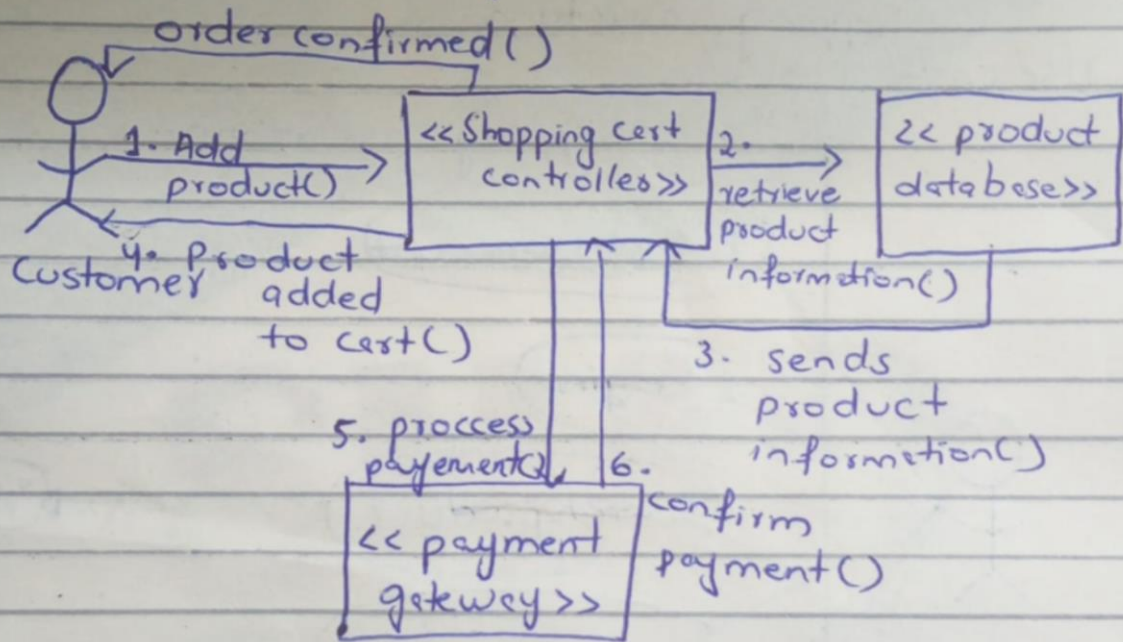 order confirmed()
1. Add
product()
<<Shopping cart
controller>>
2.
retrieve
product
information()
<< product
database>>
4. Product
added
to cart()
Customer
3. sends
product
information()
5. proccess
payement()
6.
confirm
payment()
<< payment
gateway >>